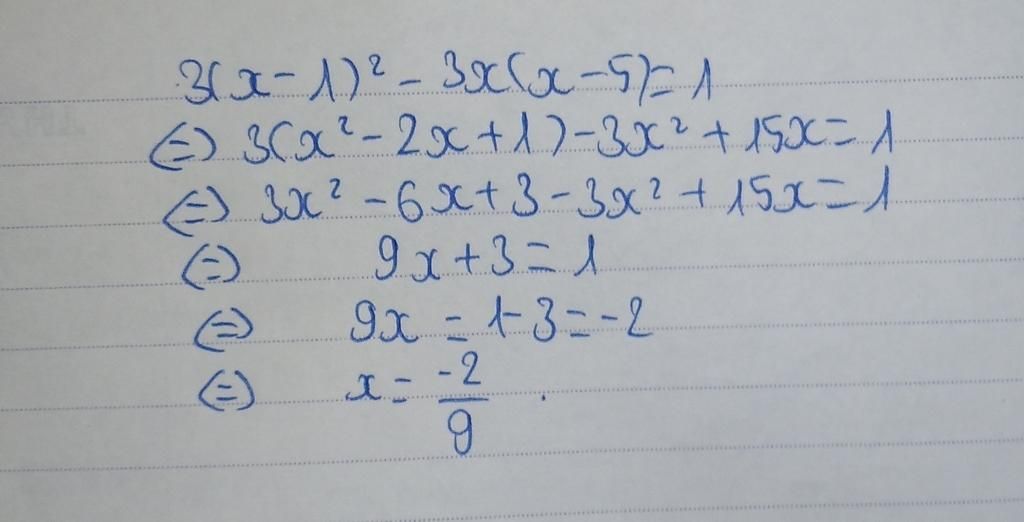 3(x - 1)² - 3x(x - 5) = 1
(=) 3(x² - 2x + 1) - 3x² + 15x = 1
(=) 3x² - 6x + 3 - 3x² + 15x = 1
(=) 9x + 3 = 1
(=) 9x = 1 - 3 = -2
(=) x = -2/9 .